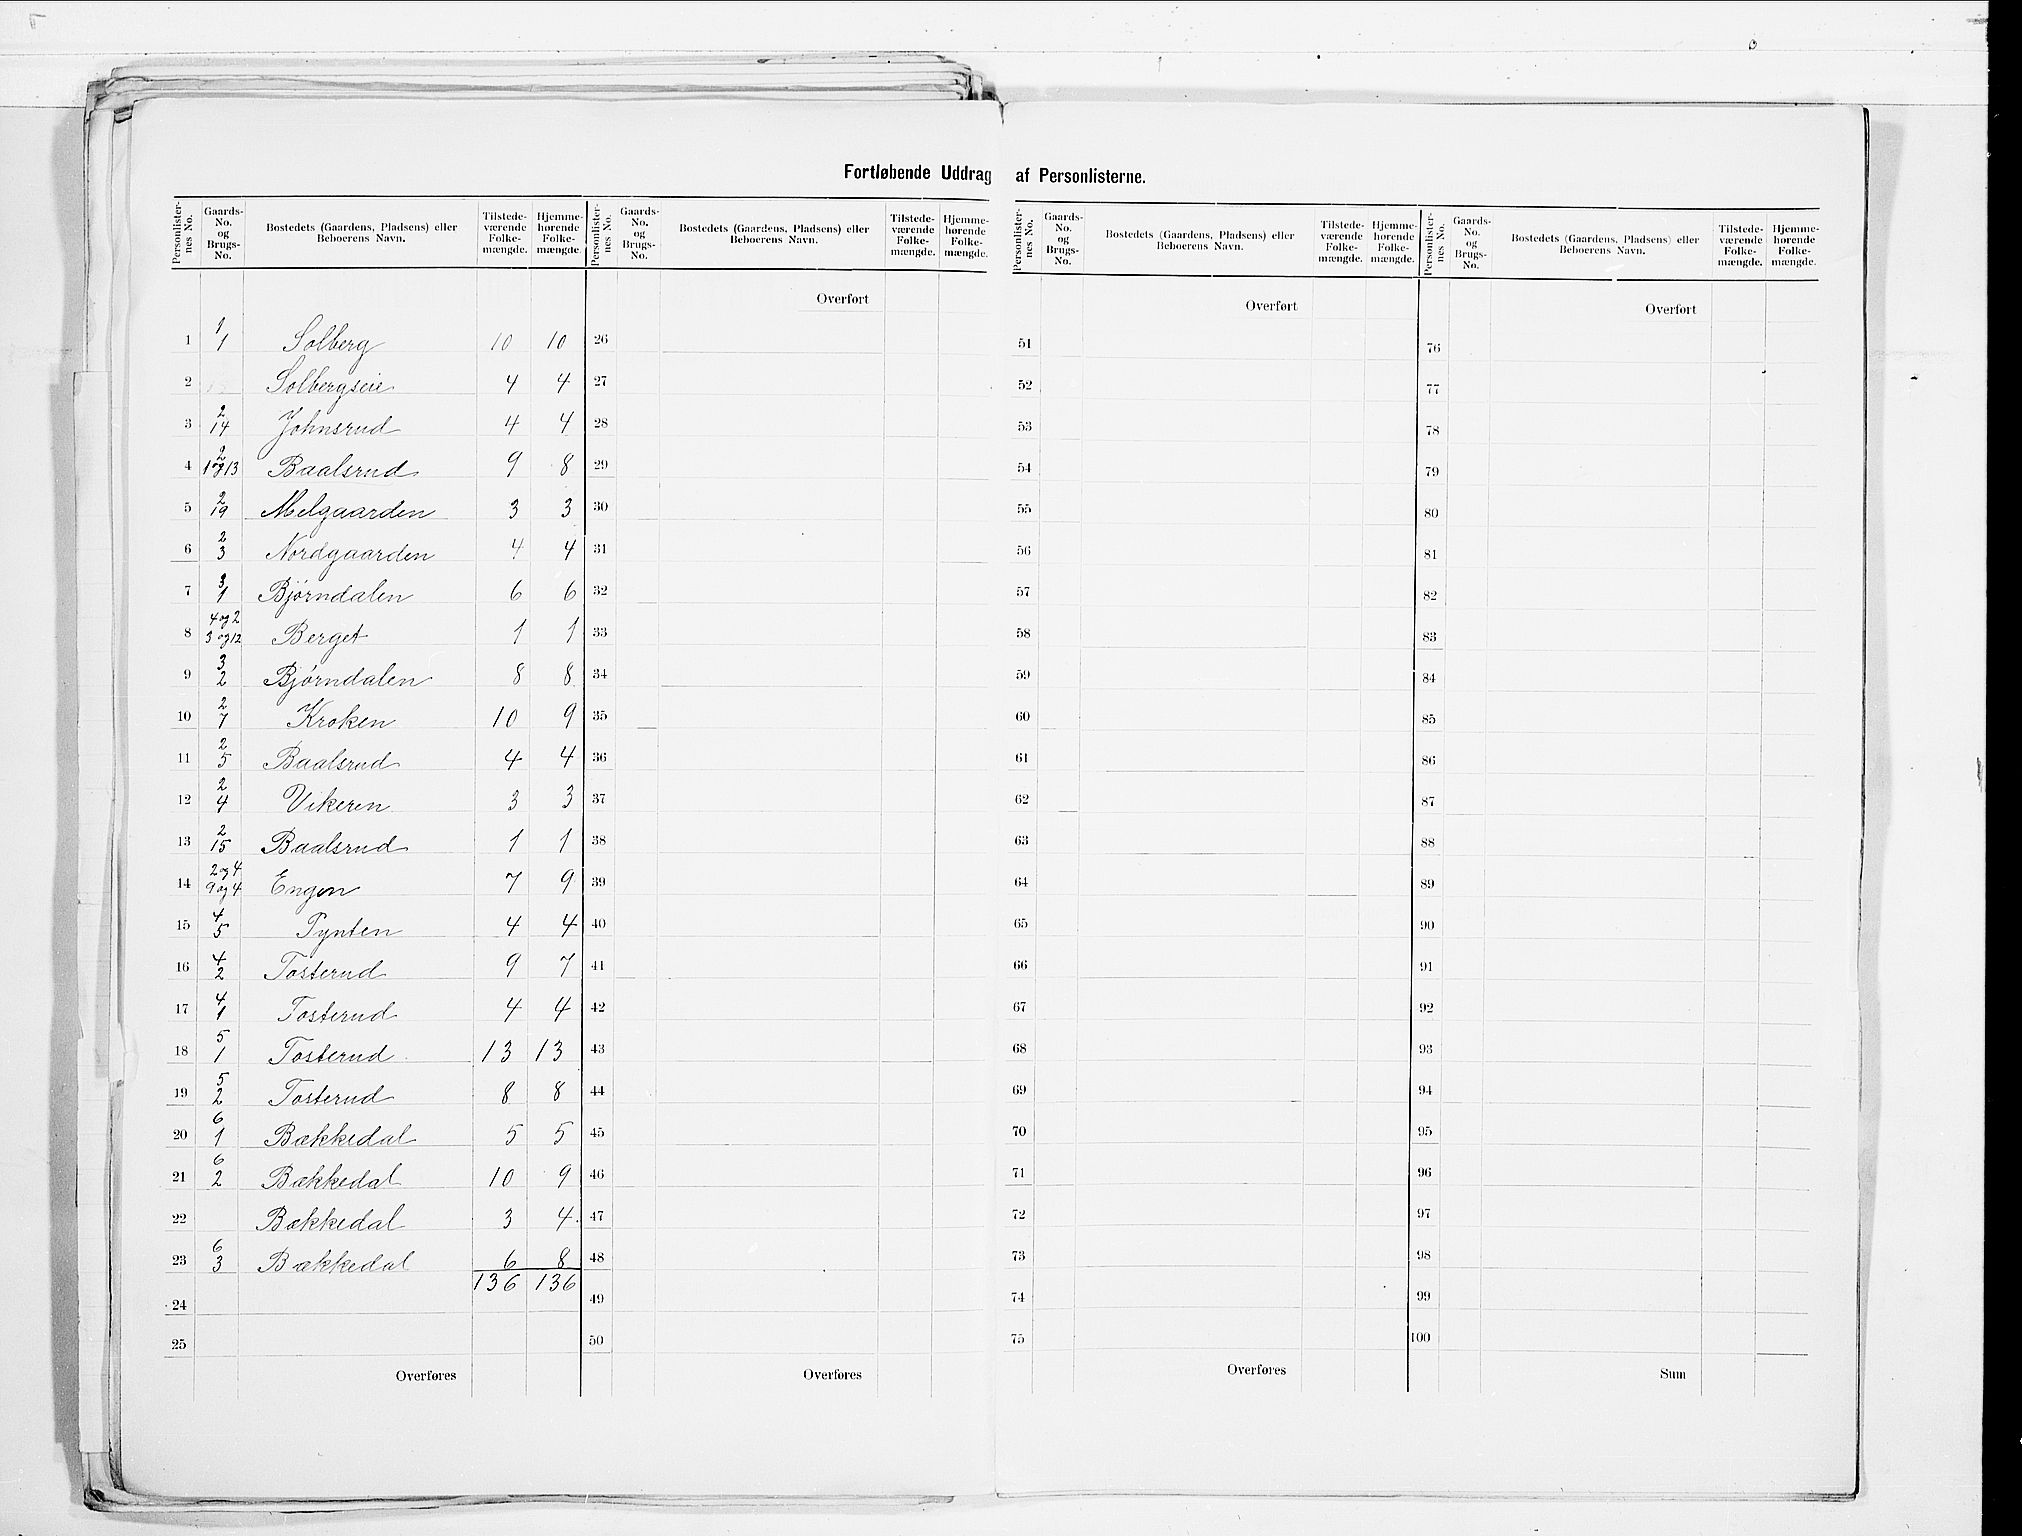 Fortløbende Uddrag af Personlisterne.
Personlister-nes No. | Gaards-No. og Brugs-No. | Bostedets (Gaardens, Pladsens) eller Beboerens Navn. | Tilstede-værende Folke-mængde. | Hjemme-hørende Folke-mængde. | Personlister-nes No. | Gaards-No. og Brugs-No. | Bostedets (Gaardens, Pladsens) eller Beboerens Navn. | Tilstede-værende Folke-mængde. | Hjemme-hørende Folke-mængde. | Personlister-nes No. | Gaards-No. og Brugs-No. | Bostedets (Gaardens, Pladsens) eller Beboerens Navn. | Tilstede-værende Folke-mængde. | Hjemme-hørende Folke-mængde. | Personlister-nes No. | Gaards-No. og Brugs-No. | Bostedets (Gaardens, Pladsens) eller Beboerens Navn. | Tilstede-værende Folke-mængde. | Hjemme-hørende Folke-mængde.
Overført Overført Overført
1 1/1 Solberg 10 10 26 51 76
2 Solbergseie 4 4 27 52 77
3 2/14 Johnsrud 4 4 28 53 78
4 2/1 og 13 Baalsrud 9 8 29 54 79
5 2/19 Melgaarden 3 3 30 55 80
6 2/3 Nordgaarden 4 4 31 56 81
7 3/1 Bjørndalen 6 6 32 57 82
8 4 og 2/3 og 12 Berget 1 1 33 58 83
9 3/2 Bjørndalen 8 8 34 59 84
10 2/7 Kroken 10 9 35 60 85
11 2/5 Baalsrud 4 4 36 61 86
12 2/4 Vikeren 3 3 37 62 87
13 2/15 Baalsrud 1 1 38 63 88
14 2 og 4/9 og 4 Engen 7 9 39 64 89
15 4/5 Pynten 4 4 40 65 90
16 4/2 Tosterud 9 7 41 66 91
17 4/1 Tosterud 4 4 42 67 92
18 5/1 Tosterud 13 13 43 68 93
19 5/2 Tosterud 8 8 44 69 94
20 6/1 Bækkedal 5 5 45 70 95
21 6/2 Bækkedal 10 9 46 71 96
22 Bækkedal 3 4 47 72 97
23 6/3 Bækkedal 6 8 48 73 98
24 136 136 49 74 99
25 50 75 100
Overføres Overføres Overføres Sum